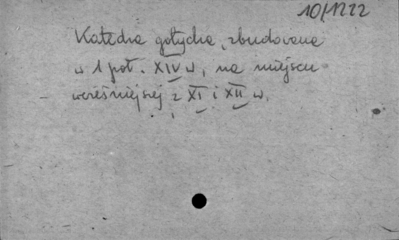 10/1222
Katedra gotycka, zbudowana
w 1 poł. XIV w, na miejscu
wcześniejszej z XI i XII w.